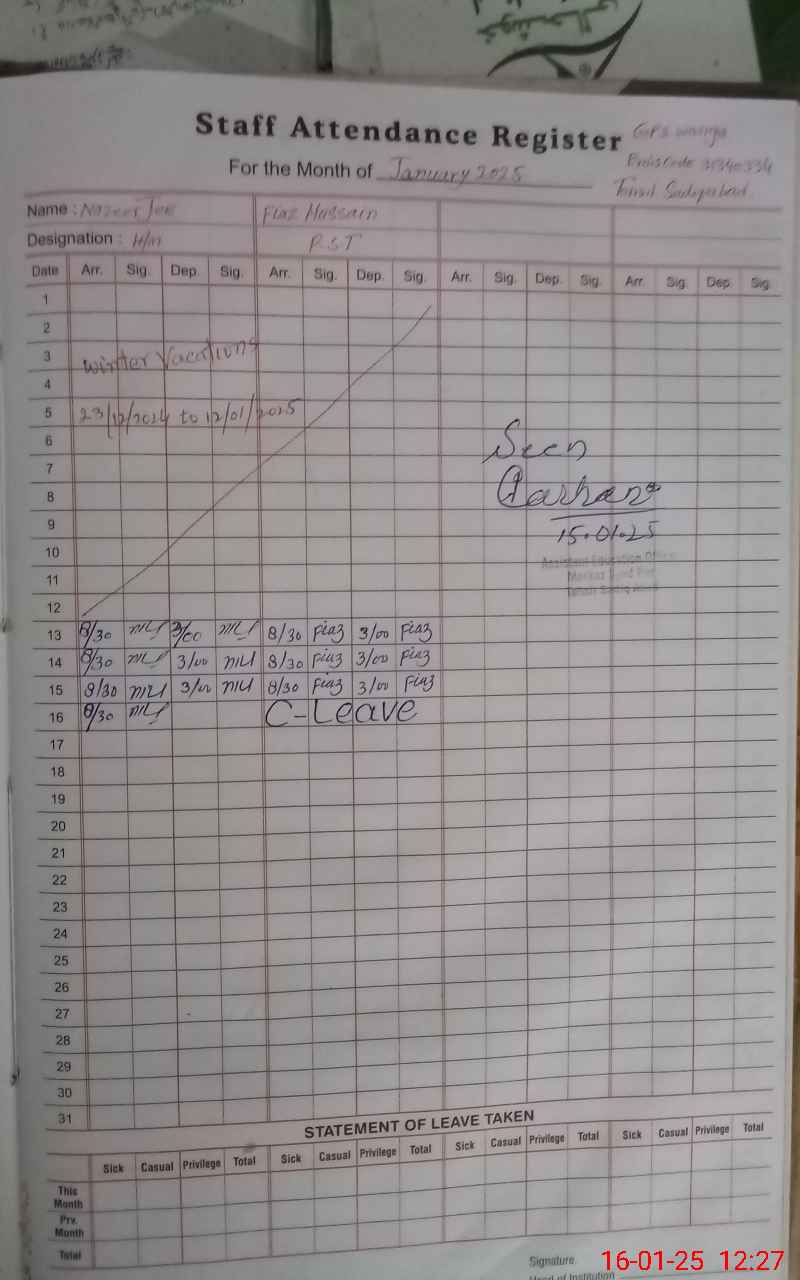 Staff Attendance Register
For the Month of January 2025
Tehsil Sadiqabad
Name : Nazeer Fiaz Hussain
Designation : H/M PST
Date Arr. Sig. Dep. Sig. Arr. Sig. Dep. Sig. Arr. Sig. Dep. Sig. Arr. Sig. Dep. Sig.
1
2
3 Winter Vacations
4
5 23/12/2024 to 12/01/2025
6 Seen
7
8
9 15.01.25
10 Assistant Education
11 Markaz
12
13 8/30 3/00 8/30 Fiaz 3/00 Fiaz
14 8/30 3/00 8/30 Fiaz 3/00 Fiaz
15 8/30 3/00 8/30 Fiaz 3/00 Fiaz
16 8/30 C-Leave
17
18
19
20
21
22
23
24
25
26
27
28
29
30
31
STATEMENT OF LEAVE TAKEN
Sick Casual Privilege Total Sick Casual Privilege Total Sick Casual Privilege Total Sick Casual Privilege Total
This Month
Prv. Month
Total
Signature.
Head of Institution
16-01-25 12:27